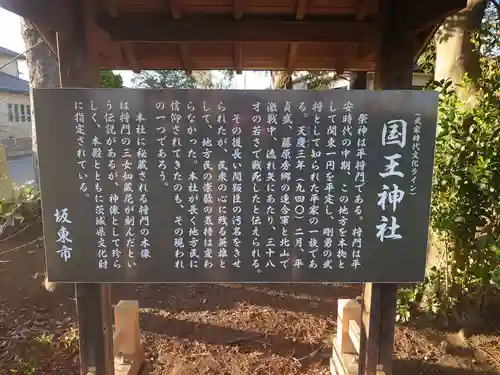 (武家時代文化ライン)
国王神社
祭神は平将門である。将門は平
安時代の中期、この地方を本拠と
して関東一円を平定し、剛勇の武
将として知られた平家の一族であ
る。天慶三年(九四〇)二月、平
貞盛、藤原秀郷の連合軍と北山で
激戦中、流れ矢にあたり、三十八
才の若さで戦死したと伝えられる。
その後長い間叛臣の汚名をきせ
られたが、民衆の心に残る英雄と
して、地方民の崇敬の気持は変わ
らなかった。本社が長く地方民に
信仰されてきたのも、その現われ
の一つであろう。
本社に秘蔵される将門の木像
は将門の三女如蔵尼が刻んだとい
う伝説があるが、神像として珍ら
しく、本殿とともに茨城県文化財
に指定されている。
坂東市